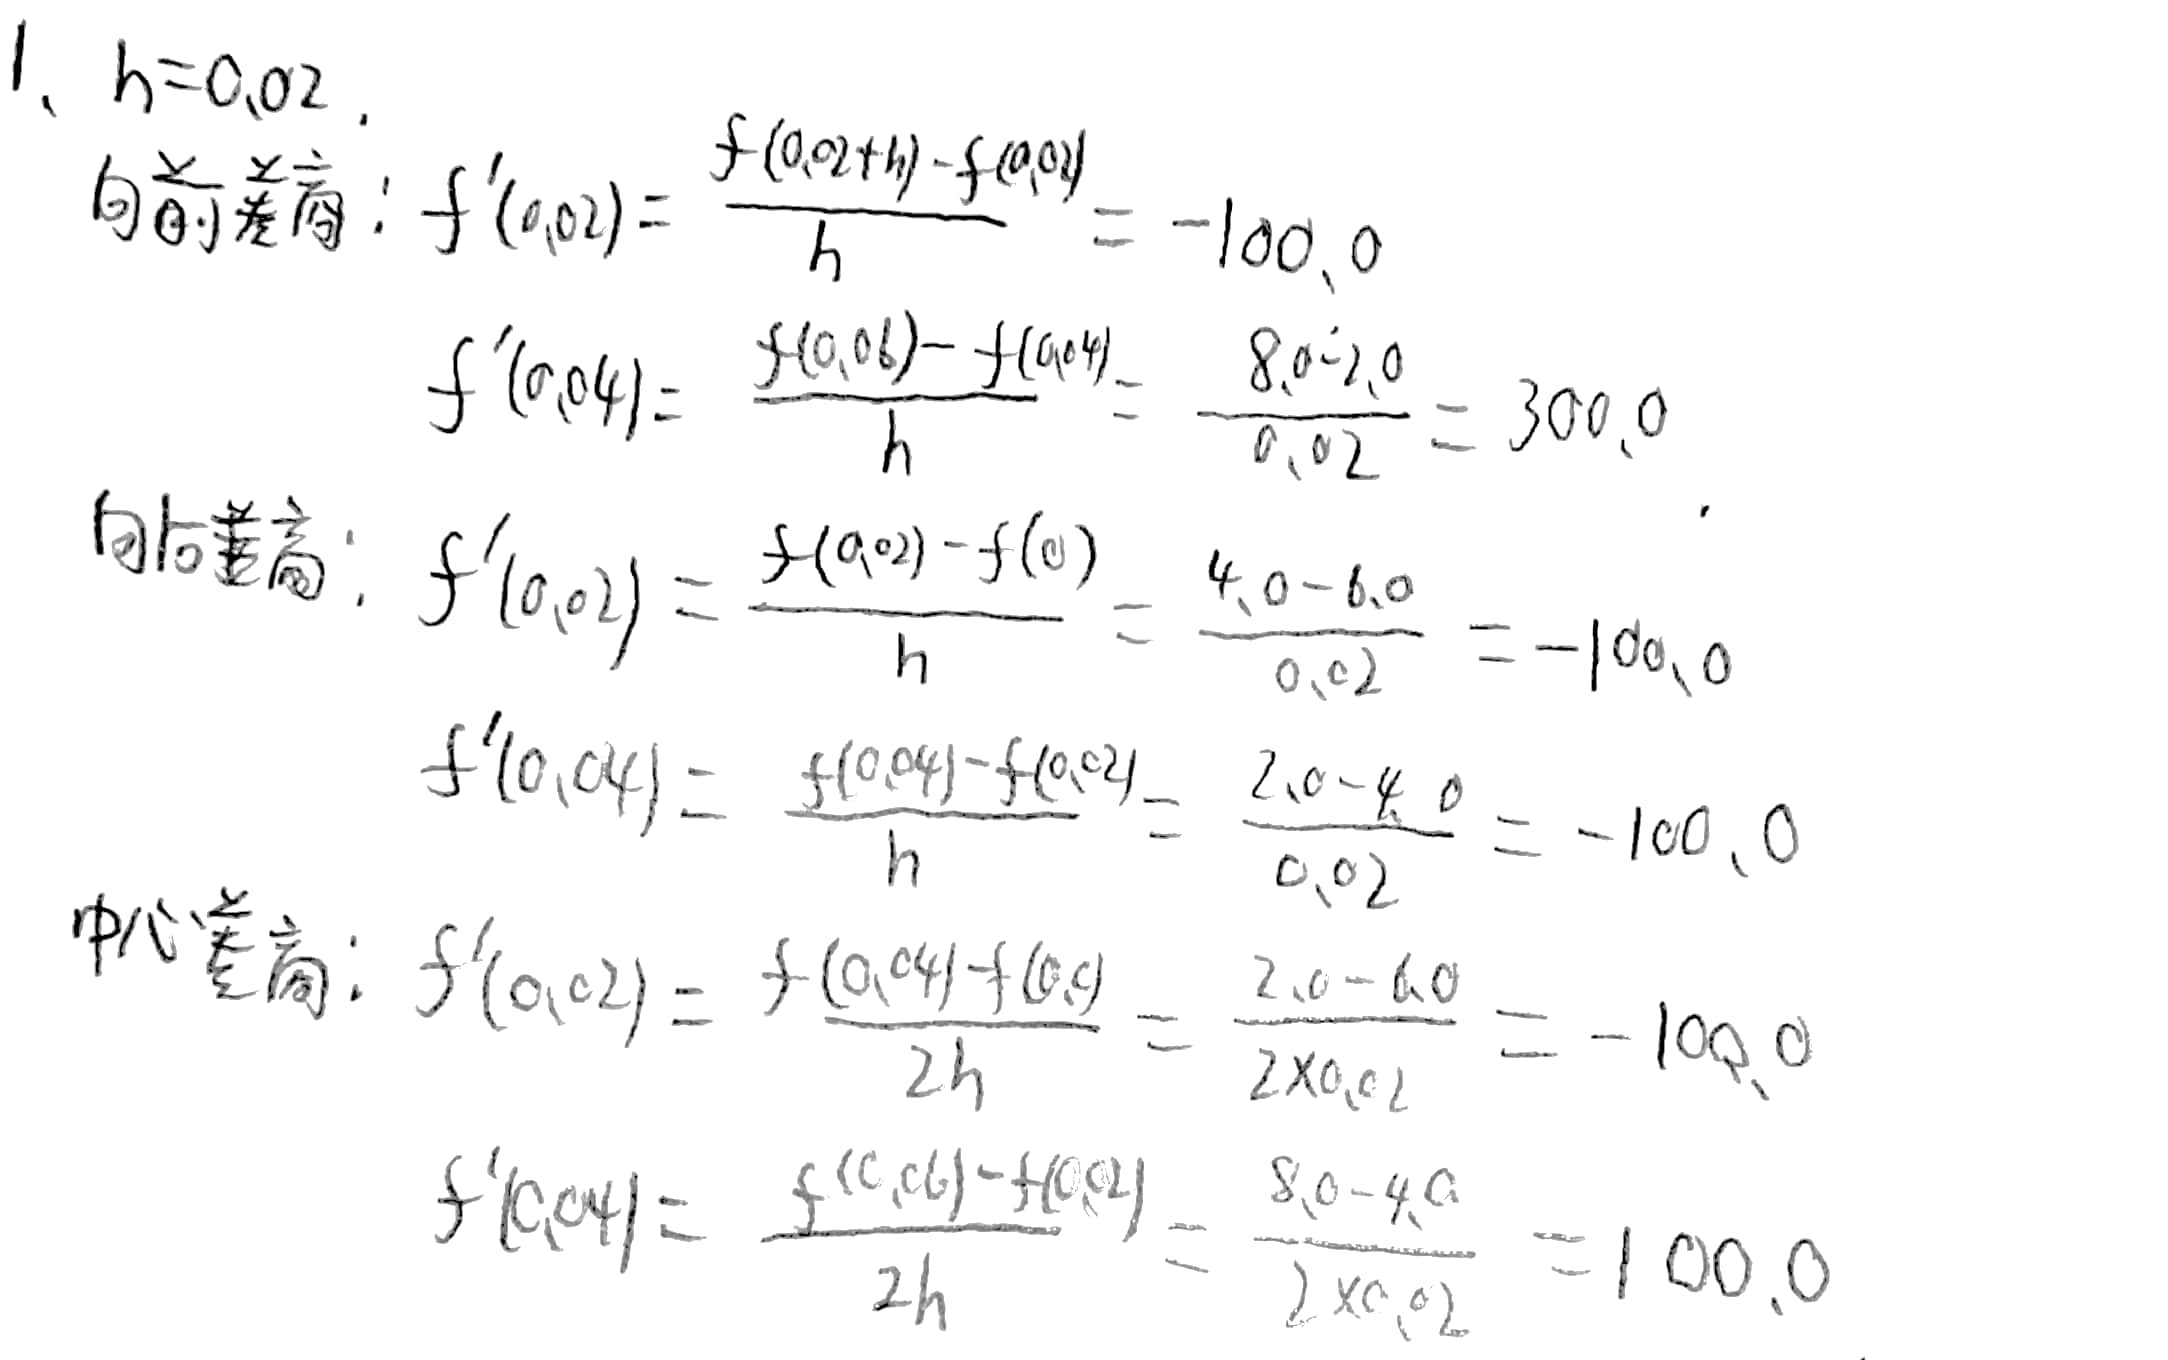 1、h=0.02.
向前差商: f'(0.02) = \frac{f(0.02+h)-f(0.02)}{h} = -100.0
f'(0.04) = \frac{f(0.06)-f(0.04)}{h} = \frac{8.0-2.0}{0.02} = 300.0
向后差商: f'(0.02) = \frac{f(0.02)-f(0)}{h} = \frac{4.0-6.0}{0.02} = -100.0
f'(0.04) = \frac{f(0.04)-f(0.02)}{h} = \frac{2.0-4.0}{0.02} = -100.0
中心差商: f'(0.02) = \frac{f(0.04)-f(0.0)}{2h} = \frac{2.0-6.0}{2×0.02} = -100.0
f'(0.04) = \frac{f(0.06)-f(0.02)}{2h} = \frac{8.0-4.0}{2×0.02} = 100.0